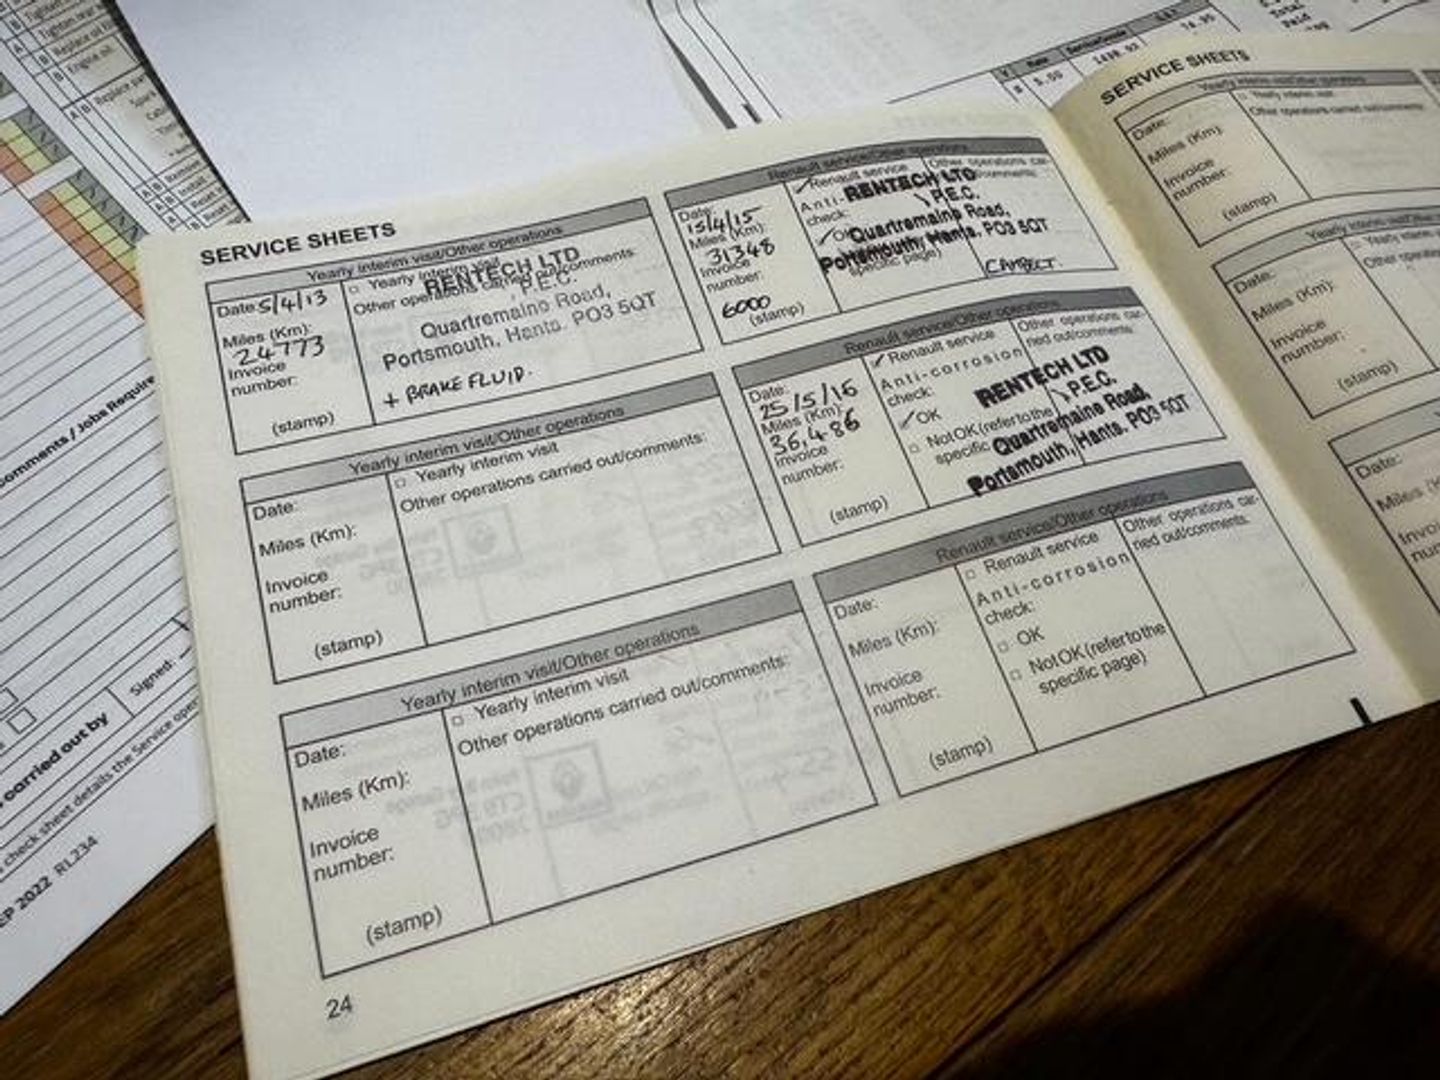 SERVICE SHEETS
Yearly interim visit/Other operations
Date: 5/4/13
Miles (Km):
24773
Invoice
number:
(stamp)
□ Yearly interim visit
Other operations carried out/comments:
RENTECH LTD
P.E.C.
Quartremaine Road,
Portsmouth, Hants. PO3 5QT
+ BRAKE FLUID.
Yearly interim visit/Other operations
Date:
Miles (Km):
Invoice
number:
(stamp)
□ Yearly interim visit
Other operations carried out/comments:
Yearly interim visit/Other operations
Date:
Miles (Km):
Invoice
number:
(stamp)
□ Yearly interim visit
Other operations carried out/comments:
24
Renault service/Other operations
Date:
15/4/15
Miles (Km):
31348
Invoice
number:
6000
(stamp)
Renault service
Anti-
check:
OK
specific page)
Other operations car-
comments:
RENTECH LTD
P.E.C.
Quartremaine Road,
Portsmouth, Hants. PO3 5QT
Renault service/Other operations
Date:
25/5/16
Miles (Km):
36,486
Invoice
number:
(stamp)
Renault service
Anti-corrosion
check:
OK
□ Not OK (refer to the
specific
Other operations car-
ried out/comments:
RENTECH LTD
P.E.C.
Quartremaine Road,
Portsmouth, Hants. PO3 5QT
Renault service/Other operations
Date:
Miles (Km):
Invoice
number:
(stamp)
□ Renault service
Anti-corrosion
check:
□ OK
□ Not OK (refer to the
specific page)
Other operations car-
ried out/comments:
SERVICE SHEETS
Yearly interim visit/Other operations
Date:
Miles (Km):
Invoice
number:
(stamp)
□ Yearly interim visit
Other operations carried out/comments:
Yearly interim visit/Other
Date:
Miles (Km):
Invoice
number:
(stamp)
Yearly
Other
Date:
Miles (K
omments / Jobs Require
Signed:
carried out by
check sheet details the Service oper
EP 2022 RL234
Engine oil
Total
Paid